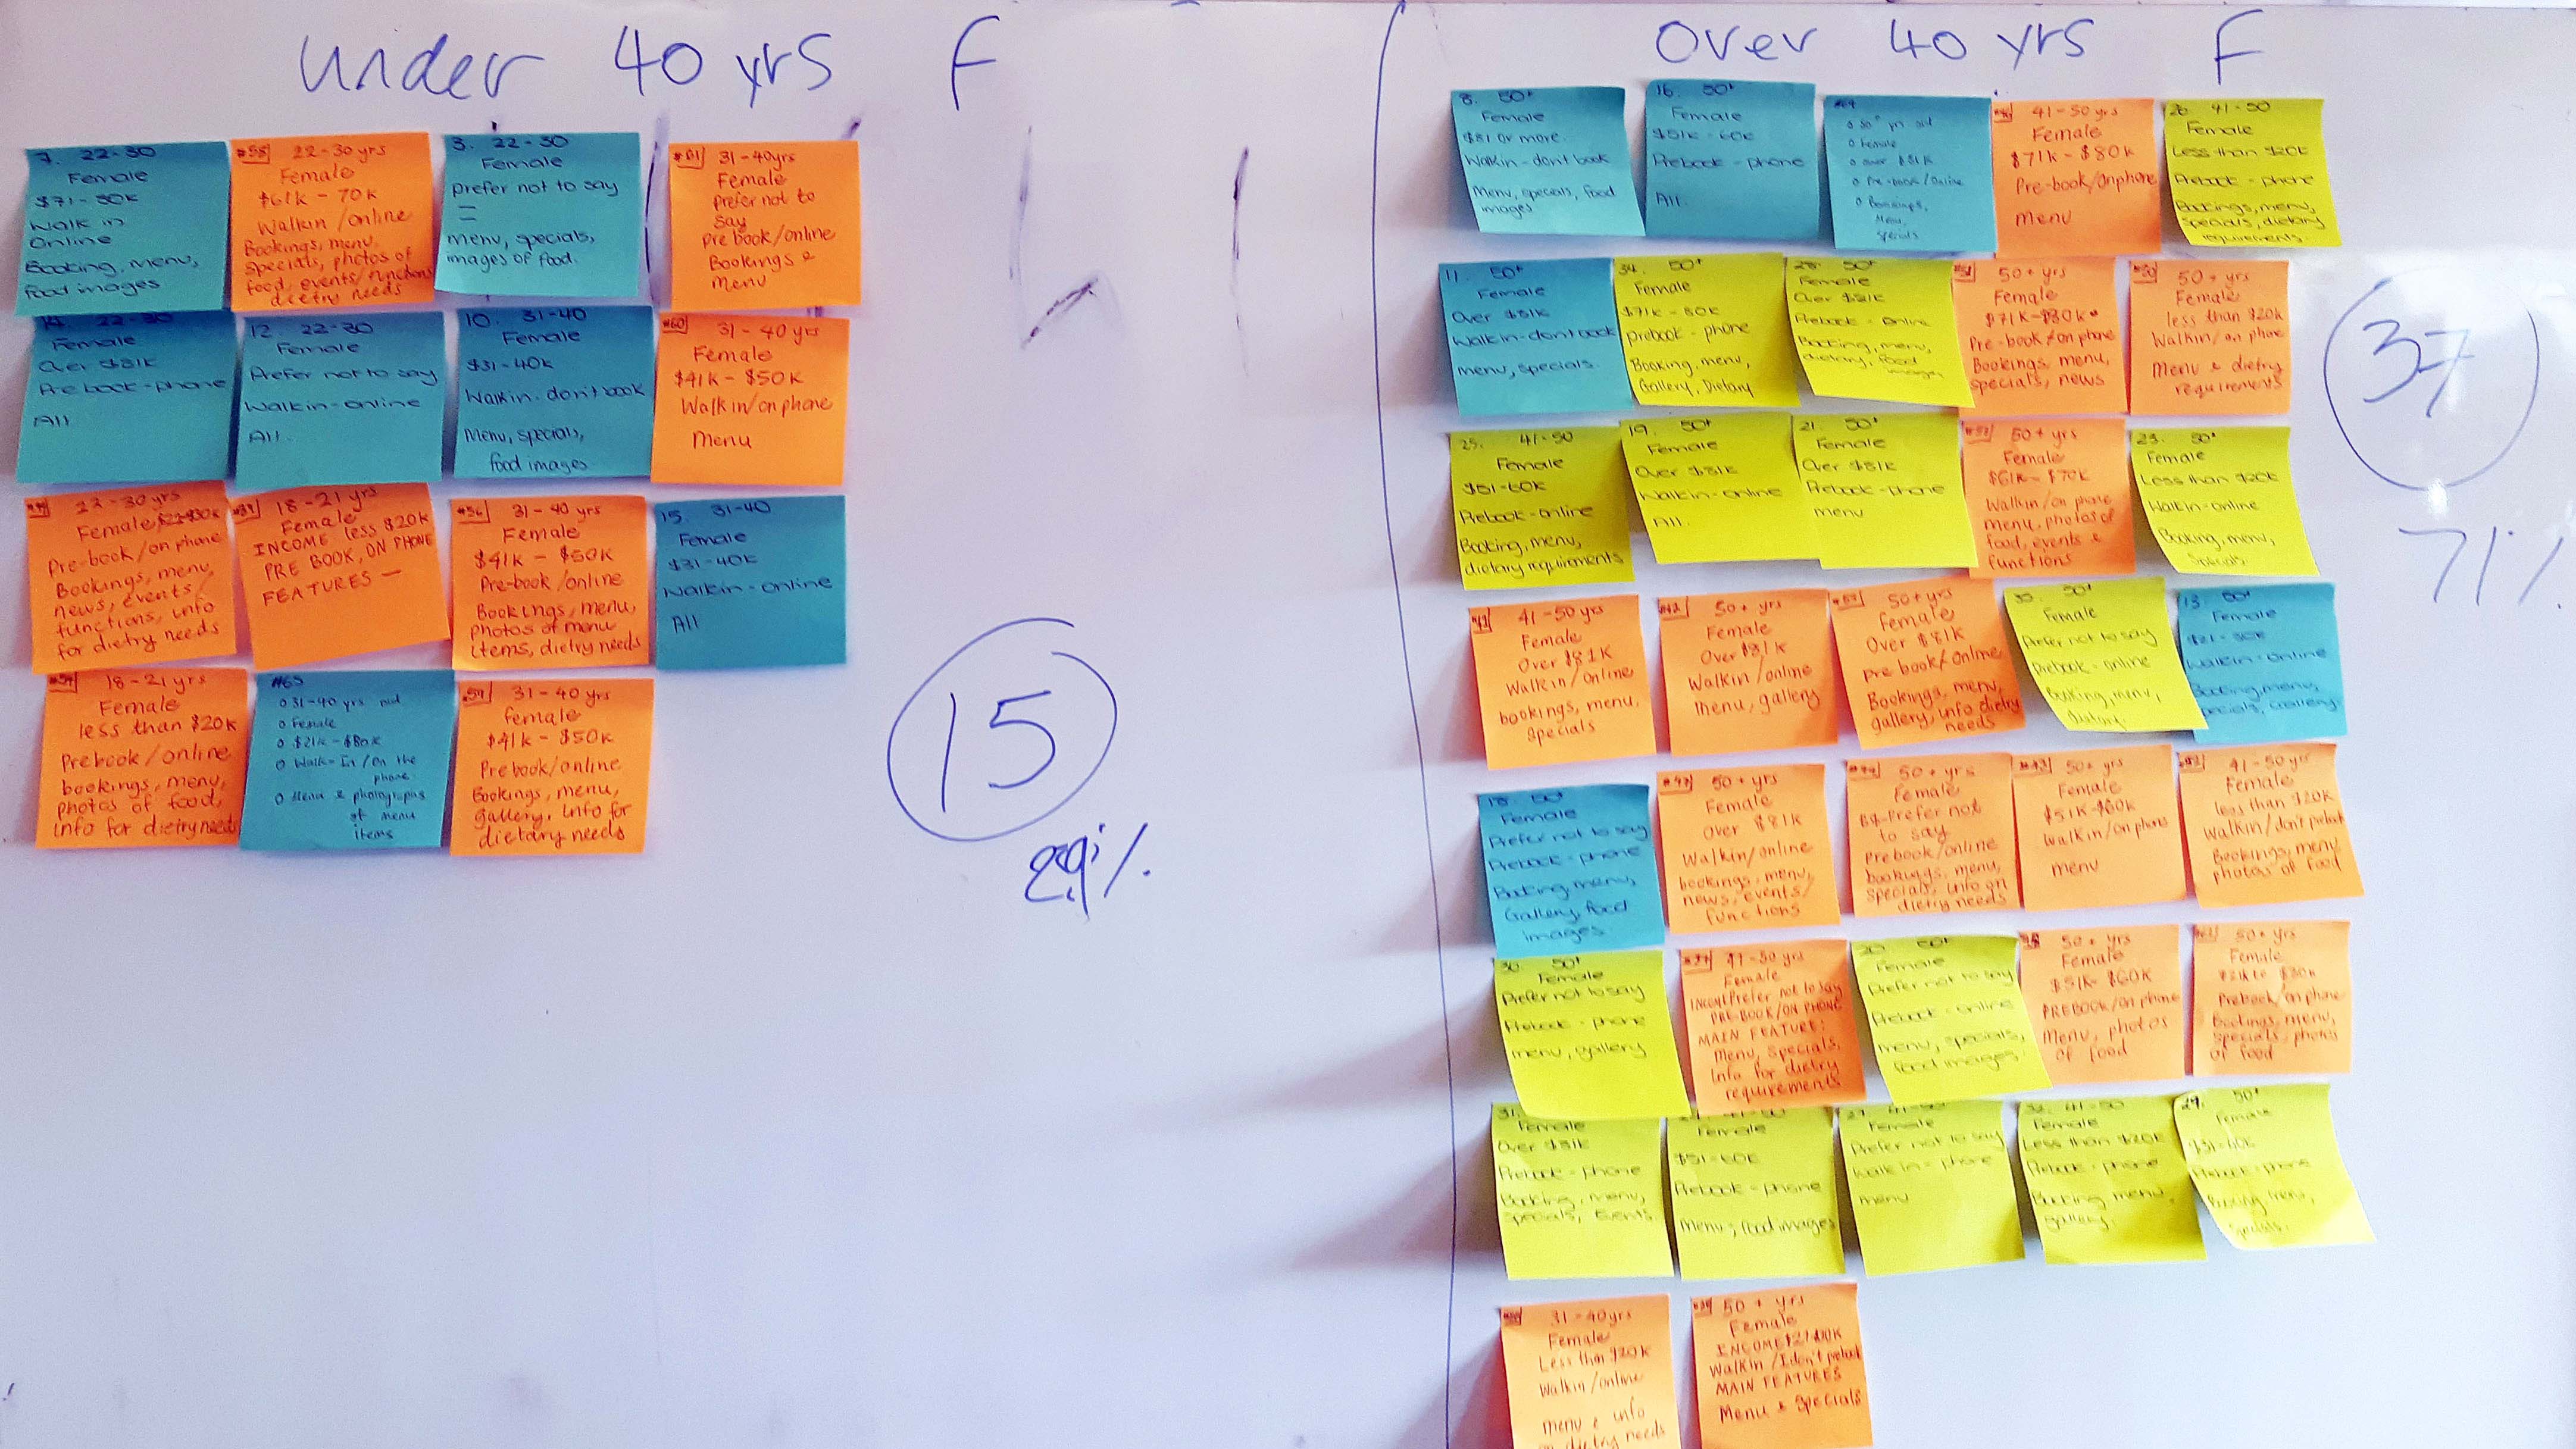 under 40 yrs F
7. 22-30
Female
$71-80K
Walk in
Online
Booking, menu,
food images
#58 22-30yrs
Female
$61K - 70K
Walkin/online
Bookings, menu,
specials, photos of
food, events/functions
dietry needs
3. 22-30
Female
prefer not to say
menu, specials,
images of food.
#61 31-40yrs
Female
Prefer not to
say
pre book/online
Bookings &
menu
14. 22-30
Female
Over $81K
Prebook-phone
All
12. 22-30
Female
Prefer not to say
Walkin-online
All.
10. 31-40
Female
$31-40K
Walkin-don't book
Menu, specials,
food images
#60 31-40 yrs
Female
$41K - $50K
Walkin/on phone
Menu
22-30 yrs
Female
Pre-book/on phone
Bookings, menu,
news, events/
functions, info
for dietry needs
18-21 yrs
Female
INCOME less $20K
PRE BOOK, ON PHONE
FEATURES —
#56 31-40 yrs
Female
$41K - $50K
Pre-book/online
Bookings, menu,
photos of menu
items, dietry needs
15. 31-40
Female
$31-40K
Walkin-online
All
18-21 yrs
Female
less than $20K
Prebook/online
bookings, menu,
photos of food,
info for dietry needs
#65
31-40 yrs old
Female
$21k-$80k
Walk-In/On the
phone
Menu & photographs
of menu
items
59 31-40 yrs
female
$41K - $50K
Prebook/online
Bookings, menu,
gallery, info for
dietary needs
15
29%
Over 40 yrs F
8. 50+
Female
$81 or more.
Walkin-dont book
Menu, specials, food
images
16. 50+
Female
$51K-60K
Prebook-phone
All.
50+ yrs old
Female
over $81K
Pre-book/Online
Bookings,
Menu,
Specials
41-50 yrs
Female
$71K-$80K
Pre-book/onphone
Menu
26. 41-50
Female
Less than $20K
Prebook-phone
Bookings, menu,
specials, dietary
requirements
11. 50+
Female
Over $81K
Walkin-dont book
menu, specials.
34. 50+
Female
$71K-80K
prebook-phone
Booking, menu,
Gallery, Dietary
50+
Female
Over $81K
Prebook-online
Booking, menu,
dietary, food
images
50+ yrs
Female
$71K-$80K
Pre-book/on phone
Bookings, menu,
specials, news
50+ yrs
Female
less than $20K
Walkin/on phone
Menu & dietry
requirements
25. 41-50
Female
$51-60K
Prebook-online
Booking, menu,
dietary requirements
19. 50+
Female
Over $81K
Walkin-online
All.
21. 50+
Female
Over $81K
Prebook-phone
menu
50+ yrs
Female
$61K-$70K
Walkin/on phone
menu, photos of
food, events &
functions
23. 50+
Female
Less than $20K
Walkin-online
Booking, menu,
specials
37
71%
41-50 yrs
Female
Over $81K
Walkin/online
bookings, menu,
specials
#42 50+ yrs
Female
Over $81K
Walkin/online
menu, gallery
50+ yrs
Female
Over $81K
pre book/online
Bookings, menu,
gallery, info dietry
needs
50+
Female
Prefer not to say
Prebook-online
Booking, menu,
dietary
13. 50+
Female
$21-30K
Walkin-online
Booking, menu,
specials, Gallery
18. 50+
Female
Prefer not to say
Prebook-phone
Booking, menu,
Gallery, food
images.
50+ yrs
Female
over $81K
Walkin/online
bookings, menu,
news, events/
functions
50+ yrs
Female
Prefer not
to say
Prebook/online
bookings, menu,
specials, info on
dietry needs
50+ yrs
Female
$51K-$60K
Walkin/on phone
menu
41-50 yrs
Female
less than $20K
Walkin/don't prebook
Bookings, menu
photos of food
30. 50+
Female
Prefer not to say
Prebook-phone
menu, gallery
41-50 yrs
Female
Prefer not to say
PRE-BOOK/ON PHONE
MAIN FEATURE:
Menu, specials,
Info for dietry
requirements
20. 50+
Female
Prefer not to say
Prebook-online
menu, specials,
food images.
50+ yrs
Female
$51K-$60K
PREBOOK/on phone
Menu, photos
of food
50+ yrs
Female
Prebook/on phone
Bookings, menu,
specials, photos
of food
31.
Female
Over $81K
Prebook-phone
Booking, menu,
specials, Events.
Female
$51-60K
Prebook-phone
Menu, food images
Female
Prefer not to say
Walk in-phone
menu
32. 41-50
Female
Less than $20K
Prebook-phone
Booking, menu,
gallery.
50+
Female
Prebook-phone
Booking, menu,
specials.
31-40yrs
Female
Less than $20K
Walkin/online
menu & info
on dietry needs
50+ yrs
Female
INCOME
Walkin/I don't prebook
MAIN FEATURES
Menu & specials